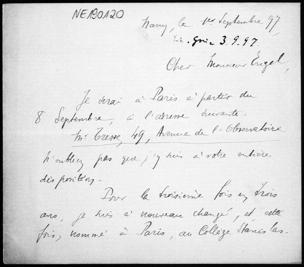 NE190120
Nancy, le 1er Septembre 97
3.9.97
Cher Monsieur Engel,
Je serai à Paris à partir du
8 Septembre, à l'adresse suivante.
Mr Cresse, 49, Avenue de l'Observatoire
N'oubliez pas que j'y suis à votre entière
disposition.
Pour la troisième fois en trois
ans, je suis à nouveau changé, et cette
fois, nommé à Paris, au Collège Stanislas.